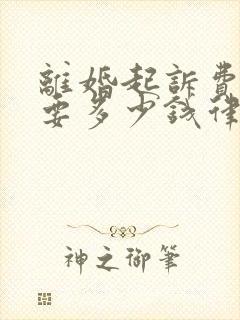 離婚起訴費
要多少錢律
神之御筆